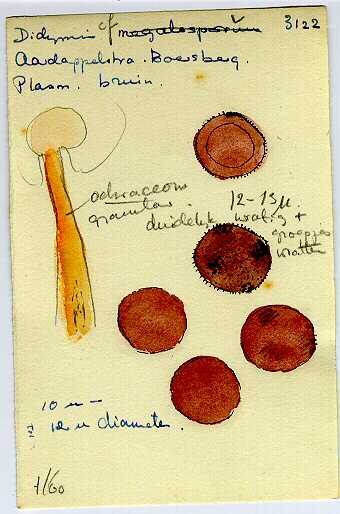 Didymium cf megalosporum 3122
Aardappelstra. Boersberg.
Plasm. bruin.
ochraceous
granular.
12-13µ.
duidelijk wratig +
groepjes
wratten
10 µ -
12 µ diameter.
1/60